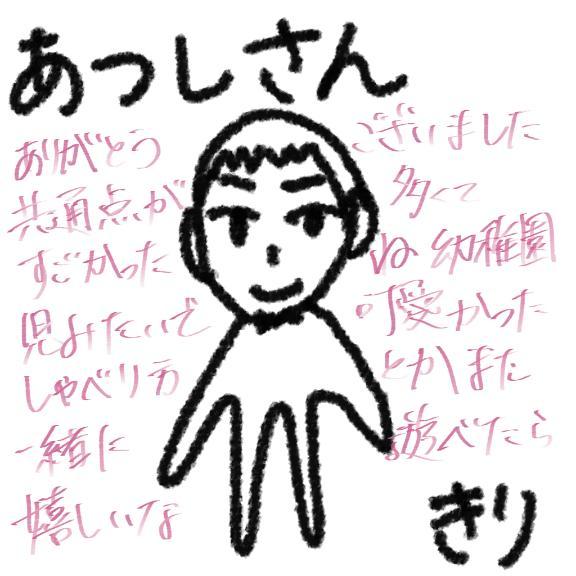 あつしさん
ありがとうございました
共通点が多くて
すごかったね 幼稚園
児みたいで可愛かった
しゃべり方とかまた
一緒に遊べたら
嬉しいな
きり